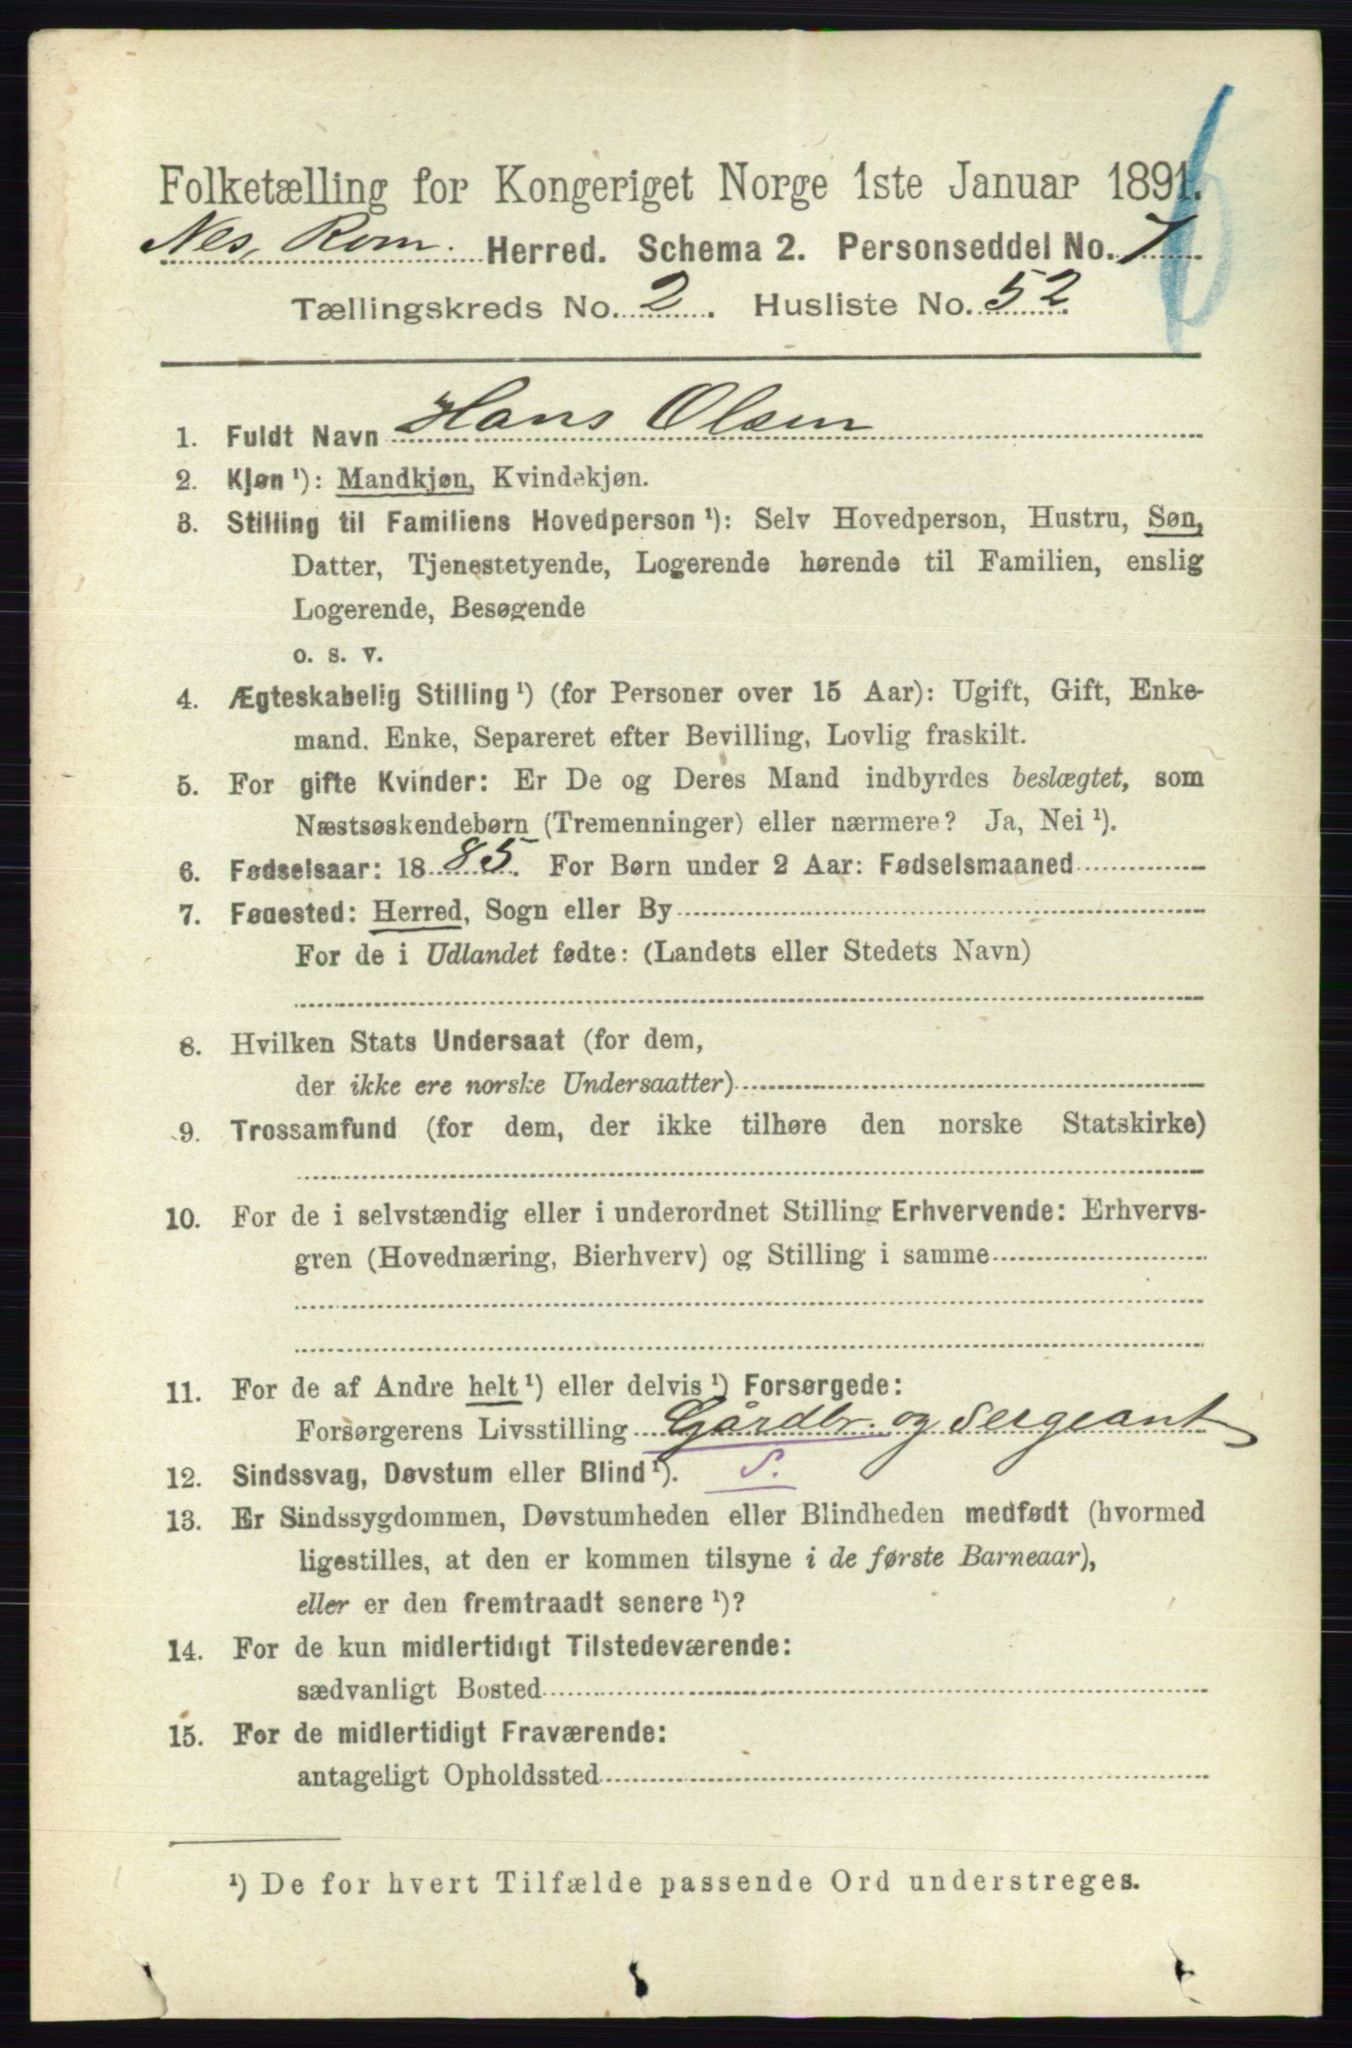 Folketælling for Kongeriget Norge 1ste Januar 1891.
Nes, Rom. Herred. Schema 2. Personseddel No. 7
Tællingskreds No. 2. Husliste No. 52
1. Fuldt Navn Hans Olsen
2. Kjøn ¹): Mandkjøn, Kvindekjøn.
3. Stilling til Familiens Hovedperson ¹): Selv Hovedperson, Hustru, Søn,
Datter, Tjenestetyende, Logerende hørende til Familien, enslig
Logerende, Besøgende
o. s. v.
4. Ægteskabelig Stilling ¹) (for Personer over 15 Aar): Ugift, Gift, Enke-
mand, Enke, Separeret efter Bevilling, Lovlig fraskilt.
5. For gifte Kvinder: Er De og Deres Mand indbyrdes beslægtet, som
Næstsøskendebørn (Tremenninger) eller nærmere? Ja, Nei ¹).
6. Fødselsaar: 1885. For Børn under 2 Aar: Fødselsmaaned
7. Fødested: Herred, Sogn eller By
For de i Udlandet fødte: (Landets eller Stedets Navn)
8. Hvilken Stats Undersaat (for dem,
der ikke ere norske Undersaatter)
9. Trossamfund (for dem, der ikke tilhøre den norske Statskirke)
10. For de i selvstændig eller i underordnet Stilling Erhvervende: Erhvervs-
gren (Hovednæring, Bierhverv) og Stilling i samme
11. For de af Andre helt ¹) eller delvis ¹) Forsørgede:
Forsørgerens Livsstilling Gårdbr. og Sergeant
12. Sindssvag, Døvstum eller Blind ¹). S.
13. Er Sindssygdommen, Døvstumheden eller Blindheden medfødt (hvormed
ligestilles, at den er kommen tilsyne i de første Barneaar),
eller er den fremtraadt senere ¹)?
14. For de kun midlertidigt Tilstedeværende:
sædvanligt Bosted
15. For de midlertidigt Fraværende:
antageligt Opholdssted
¹) De for hvert Tilfælde passende Ord understreges.